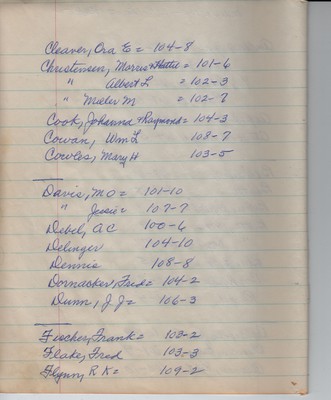 Cleaver, Ora E = 104-8
Christensen, Morris & Hattie = 101-6
" Albert L = 102-3
" Mieler M = 102-7
Cook, Johanna & Raymond = 104-3
Cowan, Wm L 108-7
Cowles, Mary H 103-5
Davis, M O = 101-10
" Jessie = 107-7
Debel, A C 100-6
Delinger 104-10
Dennis 108-8
Dornacker, Fred = 104-2
Dunn, J. J = 106-3
Fischer, Frank = 103-2
Flake, Fred 103-3
Flynn, R K = 109-2